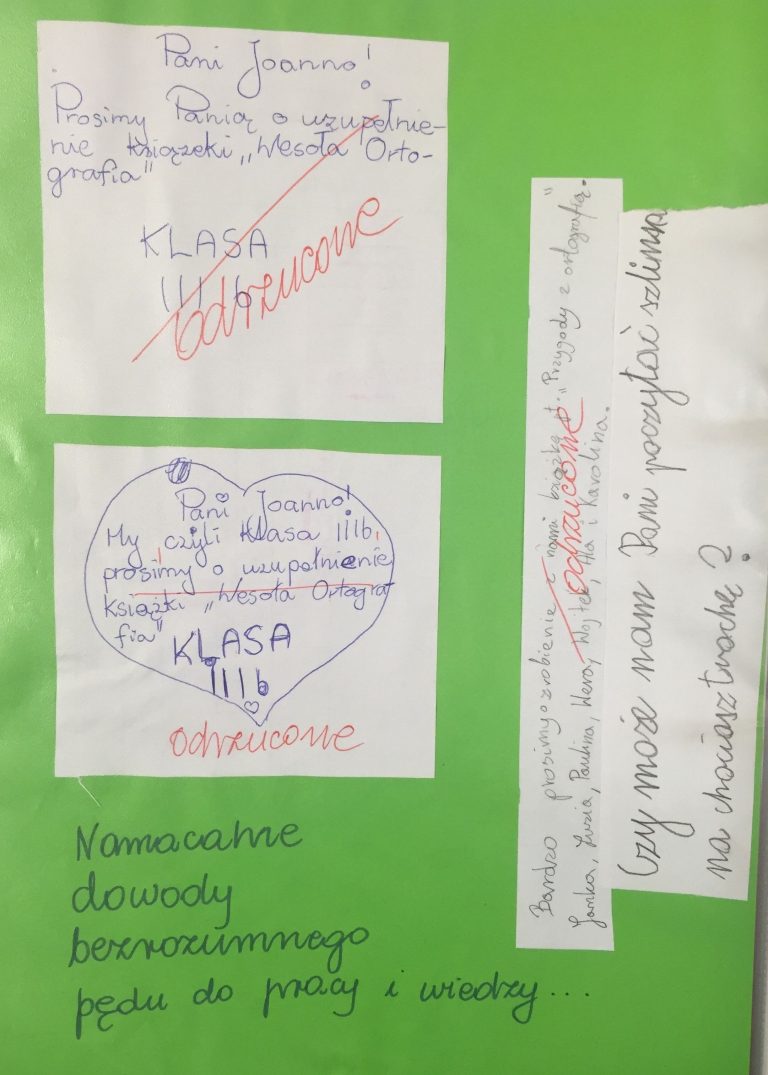 Pani Joanno!
Prosimy Panią o uzupełnie-
nie książeki „Wesoła Orto-
grafia"
KLASA
III b
odrzucone
Pani Joanno!
My, czyli klasa IIIb,
prosimy o uzupołnienie
książki „Wesoła Ortograf
fia"
KLASA
IIIb
odrzucone
Bardzo prosimy o zrobienie z nami książką pt. „Przygody z ortografią."
Janka, Zuzia, Paulina, Wera, Wojtek, Ala i Karolina.
odrzucone
Czy może nam Pani poczytać szlimra
na chociasz trochę?
Namacalne
dowody
bezrozumnego
pędu do pracy i wiedzy...